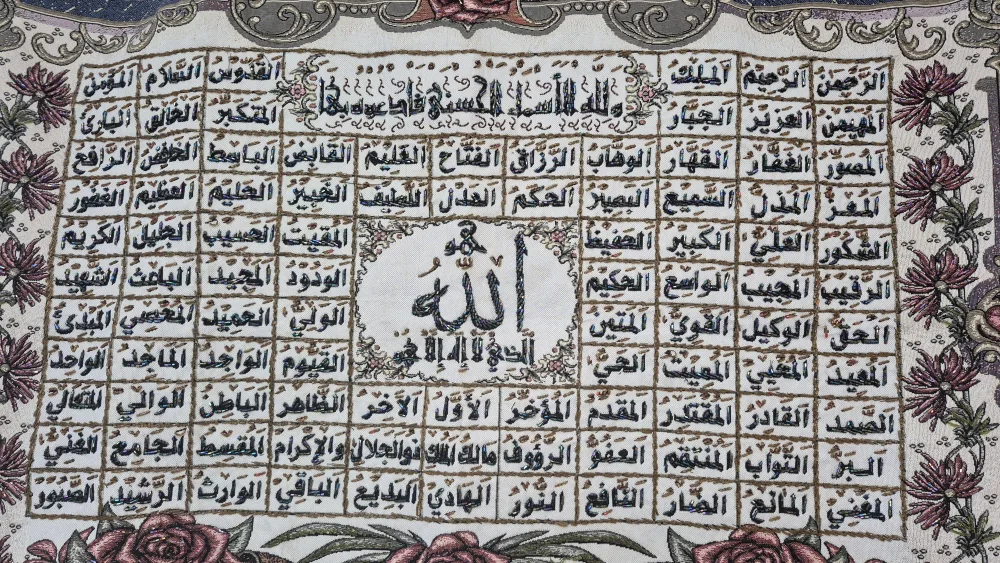 الرَّحمنُ الرَّحيم المَلِكُ القُدُّوسُ السَّلامُ المؤمنُ
ولله الأسماء الحسنى فادعوه بها
المهيمن العزيز الجبار المتكبر الخالق البارئ
المصور الغفار القهار الوهاب الرزاق الفتاح العليم القابض الباسط الخافض الرافع
المعز المذل السميع البصير الحكم العدل اللطيف الخبير الحليم العظيم الغفور
الشكور العلي الكبير الحفيظ المقيت الحسيب الجليل الكريم
الرقيب المجيب الواسع الحكيم الودود المجيد الباعث الشهيد
الحق الوكيل القوي المتين الولي الحميد المحصي المبدئ
المعيد المحيي المميت الحي القيوم الواجد الماجد الواحد
هو
الله
الذي لا إله إلا هو
الصمد القادر المقتدر المقدم المؤخر الأول الآخر الظاهر الباطن الوالي المتعالي
البر التواب المنتقم العفو الرؤوف مالك الملك ذو الجلال والإكرام المقسط الجامع الغني
المغني المانع الضار النافع النور الهادي البديع الباقي الوارث الرشيد الصبور